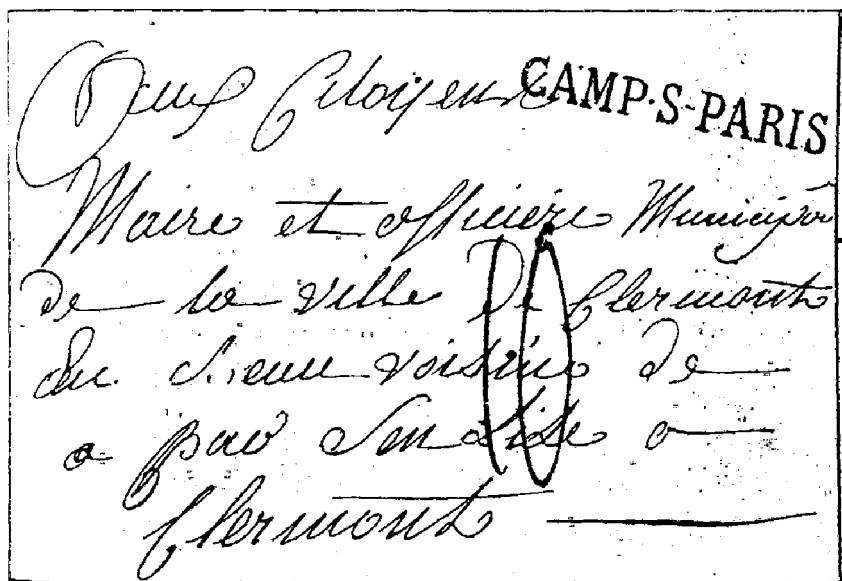 Aux Citoyens CAMP·S-PARIS
Maire et officiere Municipau
de la ville De Clermont
voisine de
a par Senlise a
Clermont